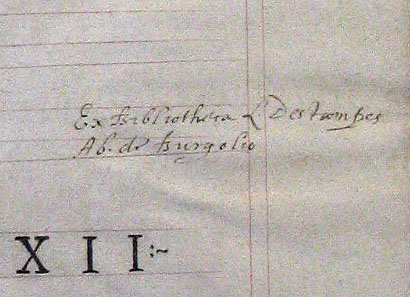 Ex Bibliotheca L Destampes
Ab. de Burgolio
XII:~